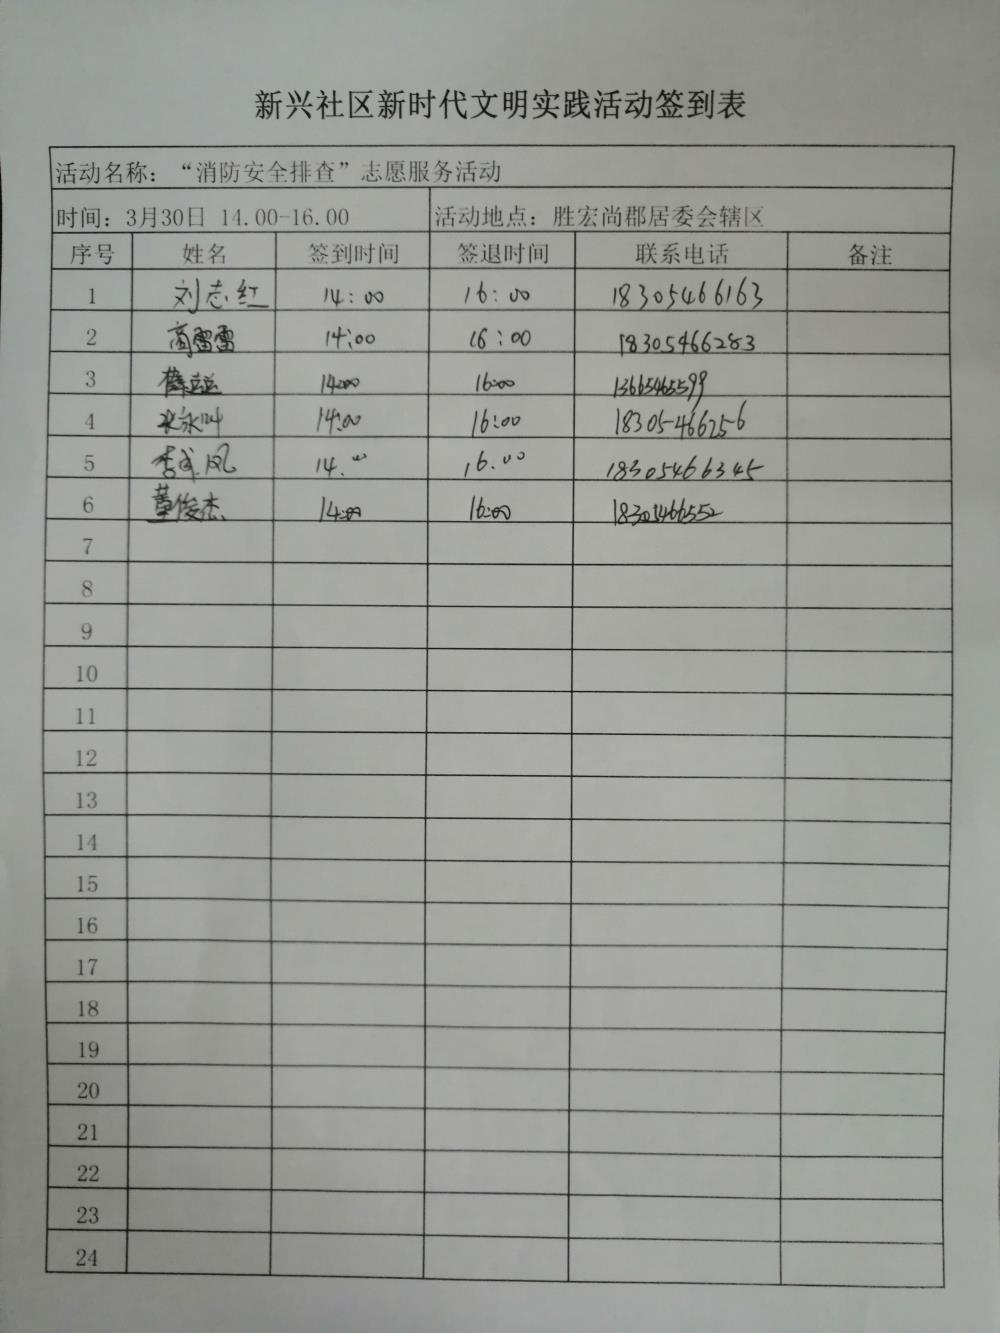 新兴社区新时代文明实践活动签到表
活动名称：“消防安全排查”志愿服务活动
时间：3月30日 14.00-16.00 活动地点：胜宏尚郡居委会辖区
序号 姓名 签到时间 签退时间 联系电话 备注
1 刘志红 14：00 16：00 18305466163
2 高雷雷 14:00 16:00 18305466283
3 薛 14:00 16:00 13665465599
4 永叶 14:00 16:00 18305466256
5 李 凤 14.00 16.00 18305466345
6 董俊杰 14:00 16:00 18305466552
7
8
9
10
11
12
13
14
15
16
17
18
19
20
21
22
23
24